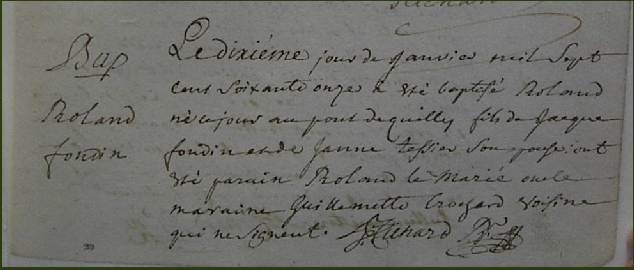 Bap
Roland
fondin
Le dixiéme jour de Janvier mil Sept
cent soixante onze a été baptisé Roland
né ce jour au pont de quilly fils de Jacque
fondin et de Janne tessier son epouse, ont
été parain Roland le Marié oncle
maraine Guillemette voisine
qui ne signent.